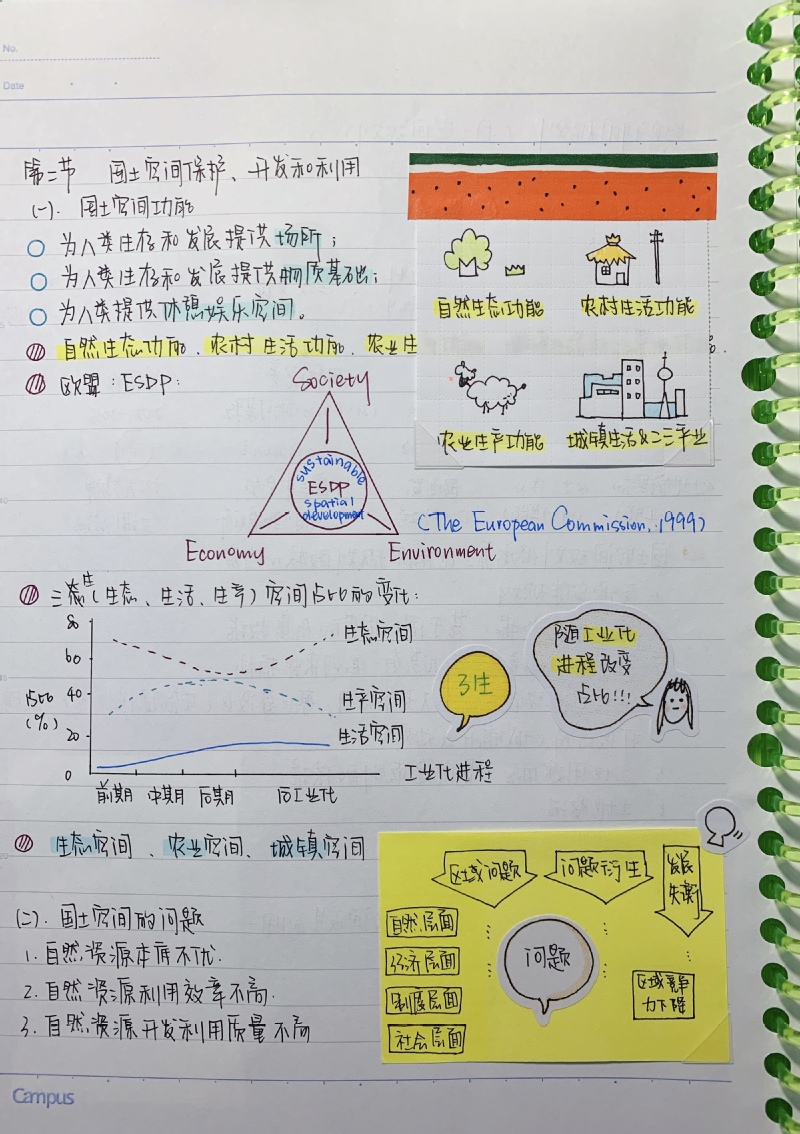 No.
Date
第二节 国土空间保护、开发和利用
(一). 国土空间功能
为人类生存和发展提供场所;
为人类生存和发展提供物质基础;
为人类提供休憩娱乐空间。
自然生态功能、农村生活功能、农业生
自然生态功能
农村生活功能
农业生产功能
城镇生活&二三产业
欧盟:ESDP:
Society
sustainable
ESDP
spatial
development
Economy
Environment
(The European Commission, 1999)
三生(生态、生活、生产)空间占比的变化:
占比
(%)
80
60
40
20
0
生态空间
生产空间
生活空间
前期 中期 后期 后工业化
工业化进程
3生
随工业化
进程改变
占比!!!
生态空间、农业空间、城镇空间
(二). 国土空间的问题
1. 自然资源本底不优.
2. 自然资源利用效率不高.
3. 自然资源开发利用质量不高
区域问题
问题衍生
发展失衡
自然层面
经济层面
制度层面
社会层面
问题
区域竞争
力下降
Campus